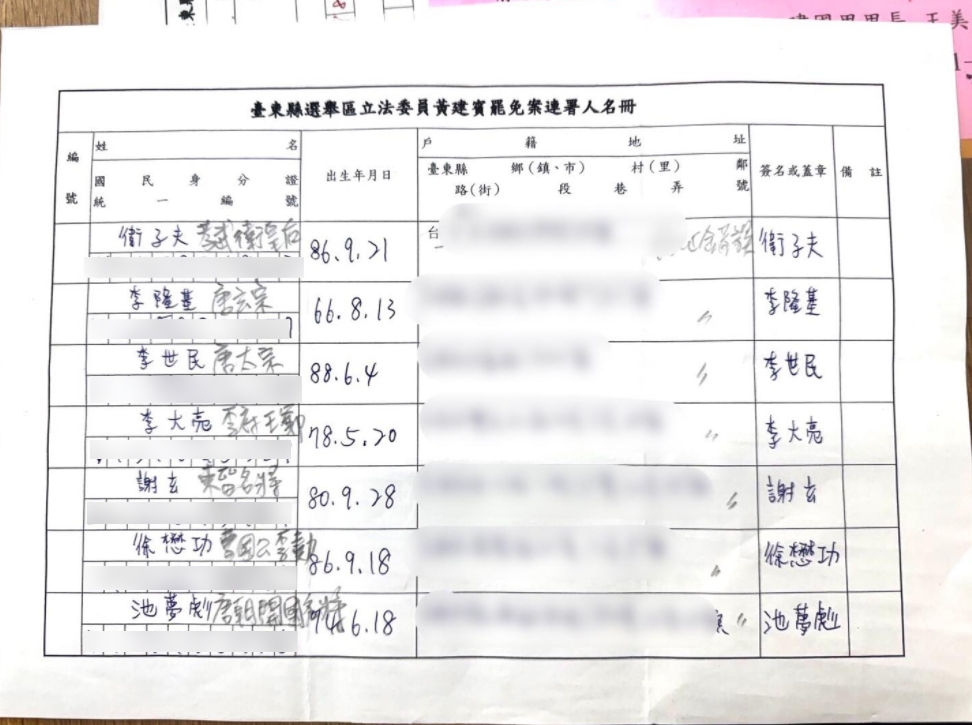 王美
臺東縣選舉區立法委員黃建賓罷免案連署人名冊
編號
姓名
國民身分證
統一編號
出生年月日
戶籍地址
臺東縣 鄉(鎮、市) 村(里) 鄰
路(街) 段 巷 弄 號
簽名或蓋章
備註
衛子夫 衛皇后 86.9.21 台 衛子夫
李隆基 唐玄宗 66.8.13 〃 李隆基
李世民 唐太宗 88.6.4 〃 李世民
李大亮 78.5.20 〃 李大亮
謝玄 東晉名將 80.9.28 〃 謝玄
徐懋功 86.9.18 〃 徐懋功
池夢彪 唐朝開國 94.6.18 〃 池夢彪